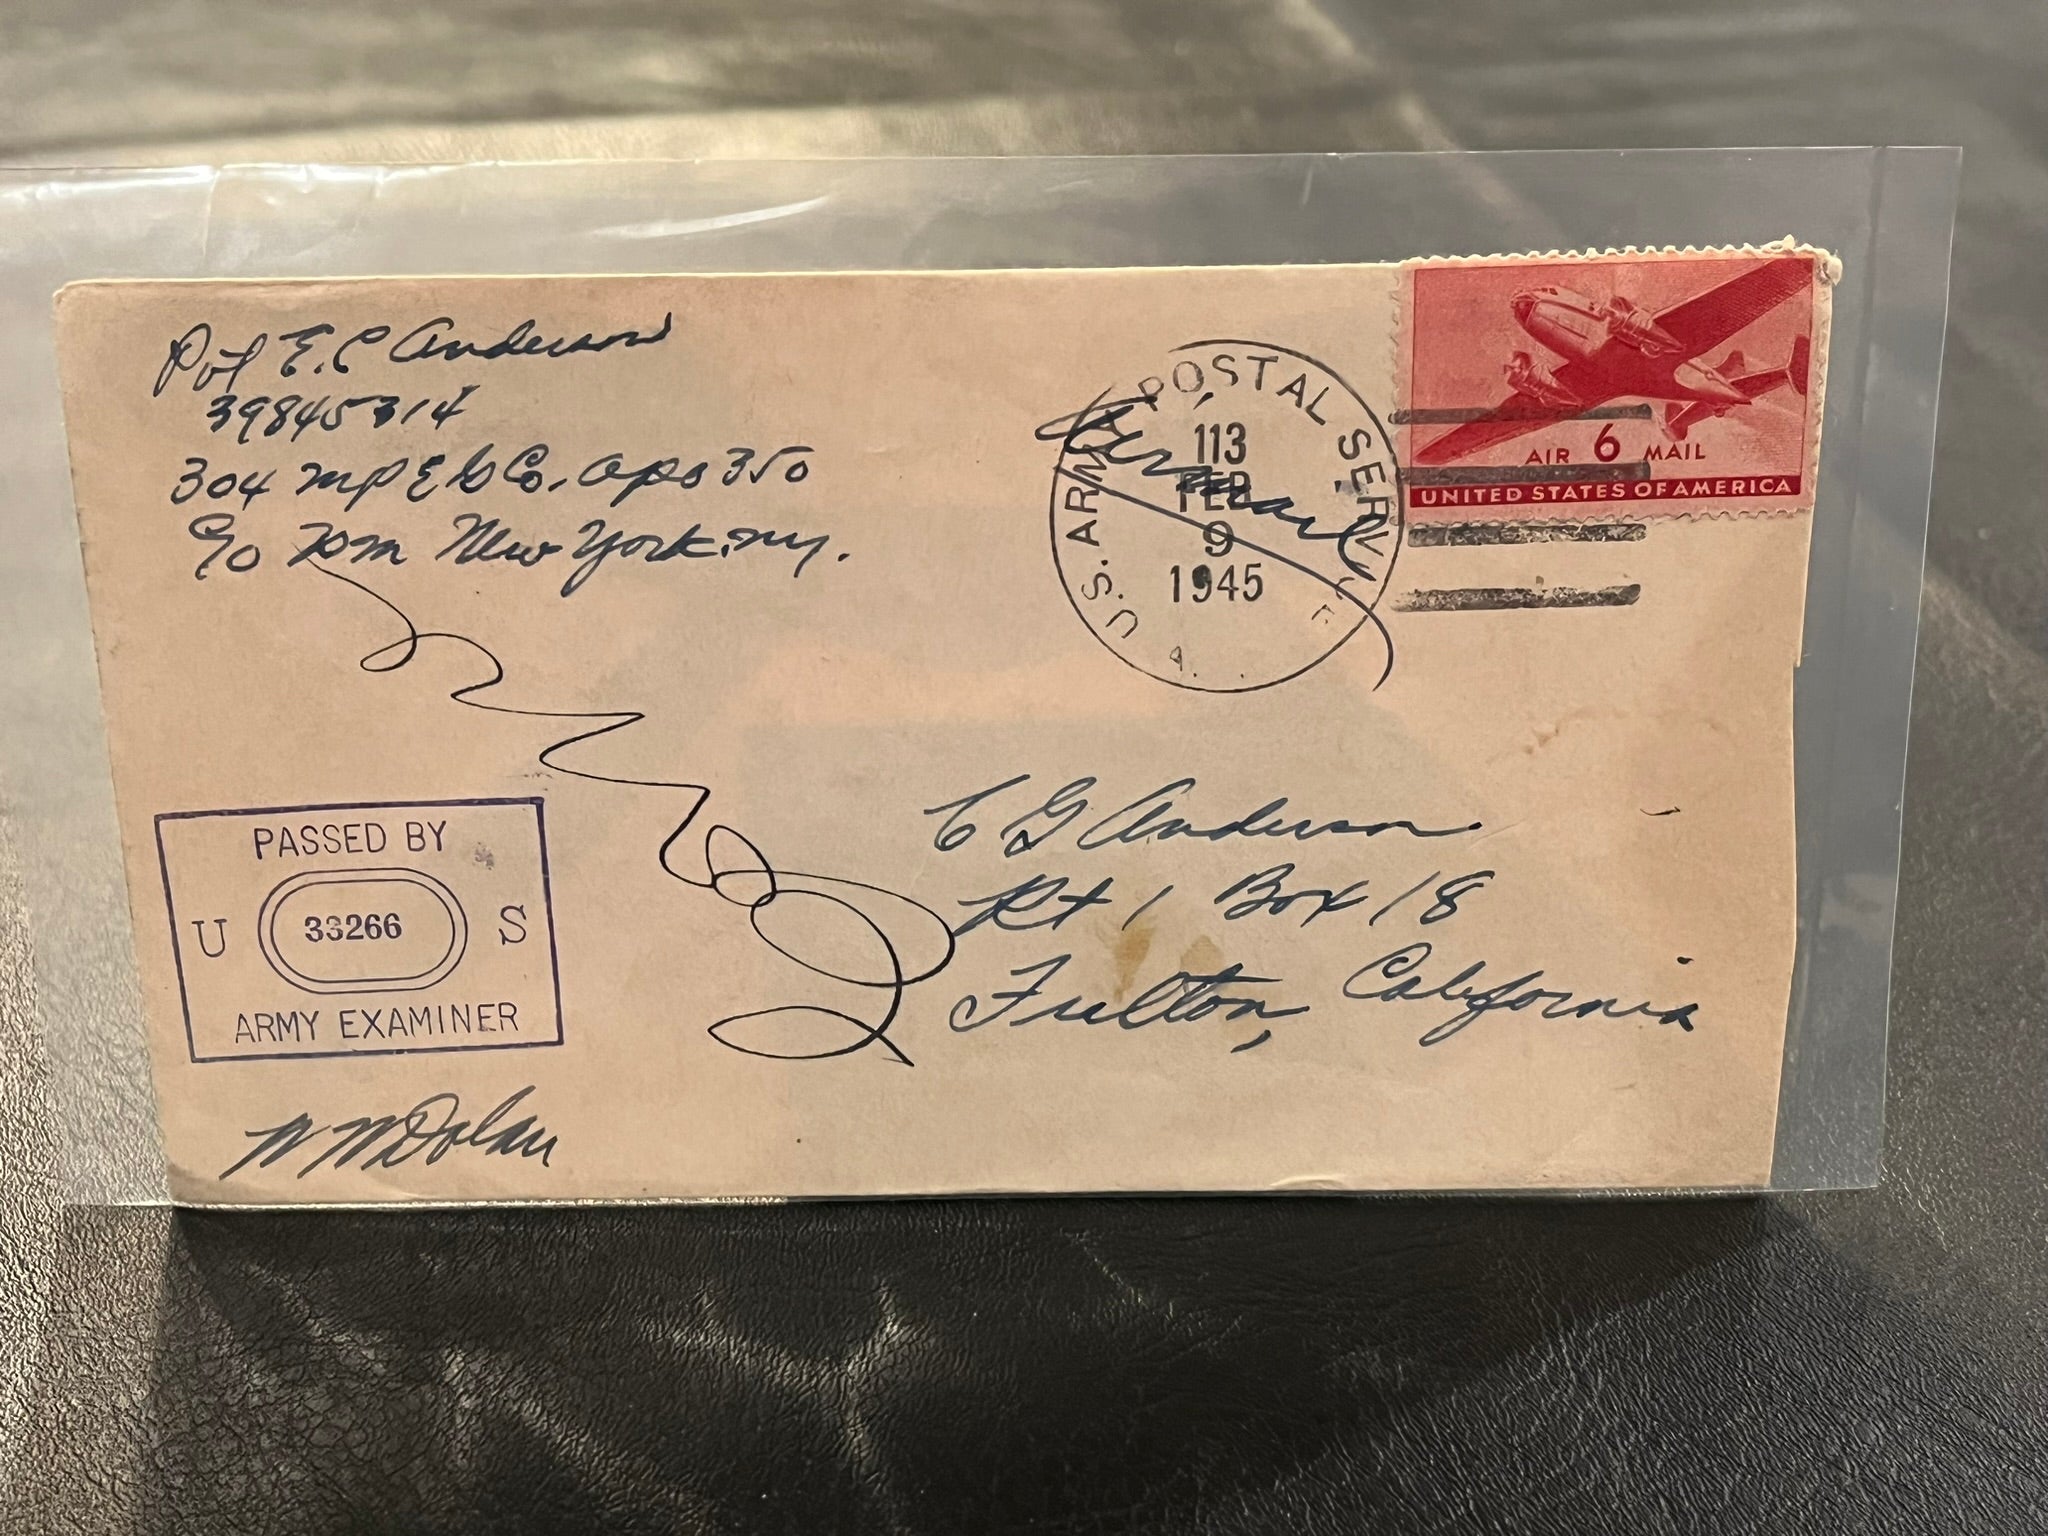 Pvt E.C Anderson
39845314
304 MPEG Co. APO 350
c/o P.M New York. N.Y.
U.S. ARMY POSTAL SERVICE
113
FEB
9
1945
AIR 6 MAIL
UNITED STATES OF AMERICA
PASSED BY
U 33266 S
ARMY EXAMINER
C G Anderson
Rt 1 Box 18
Fulton, California
W W Dolan